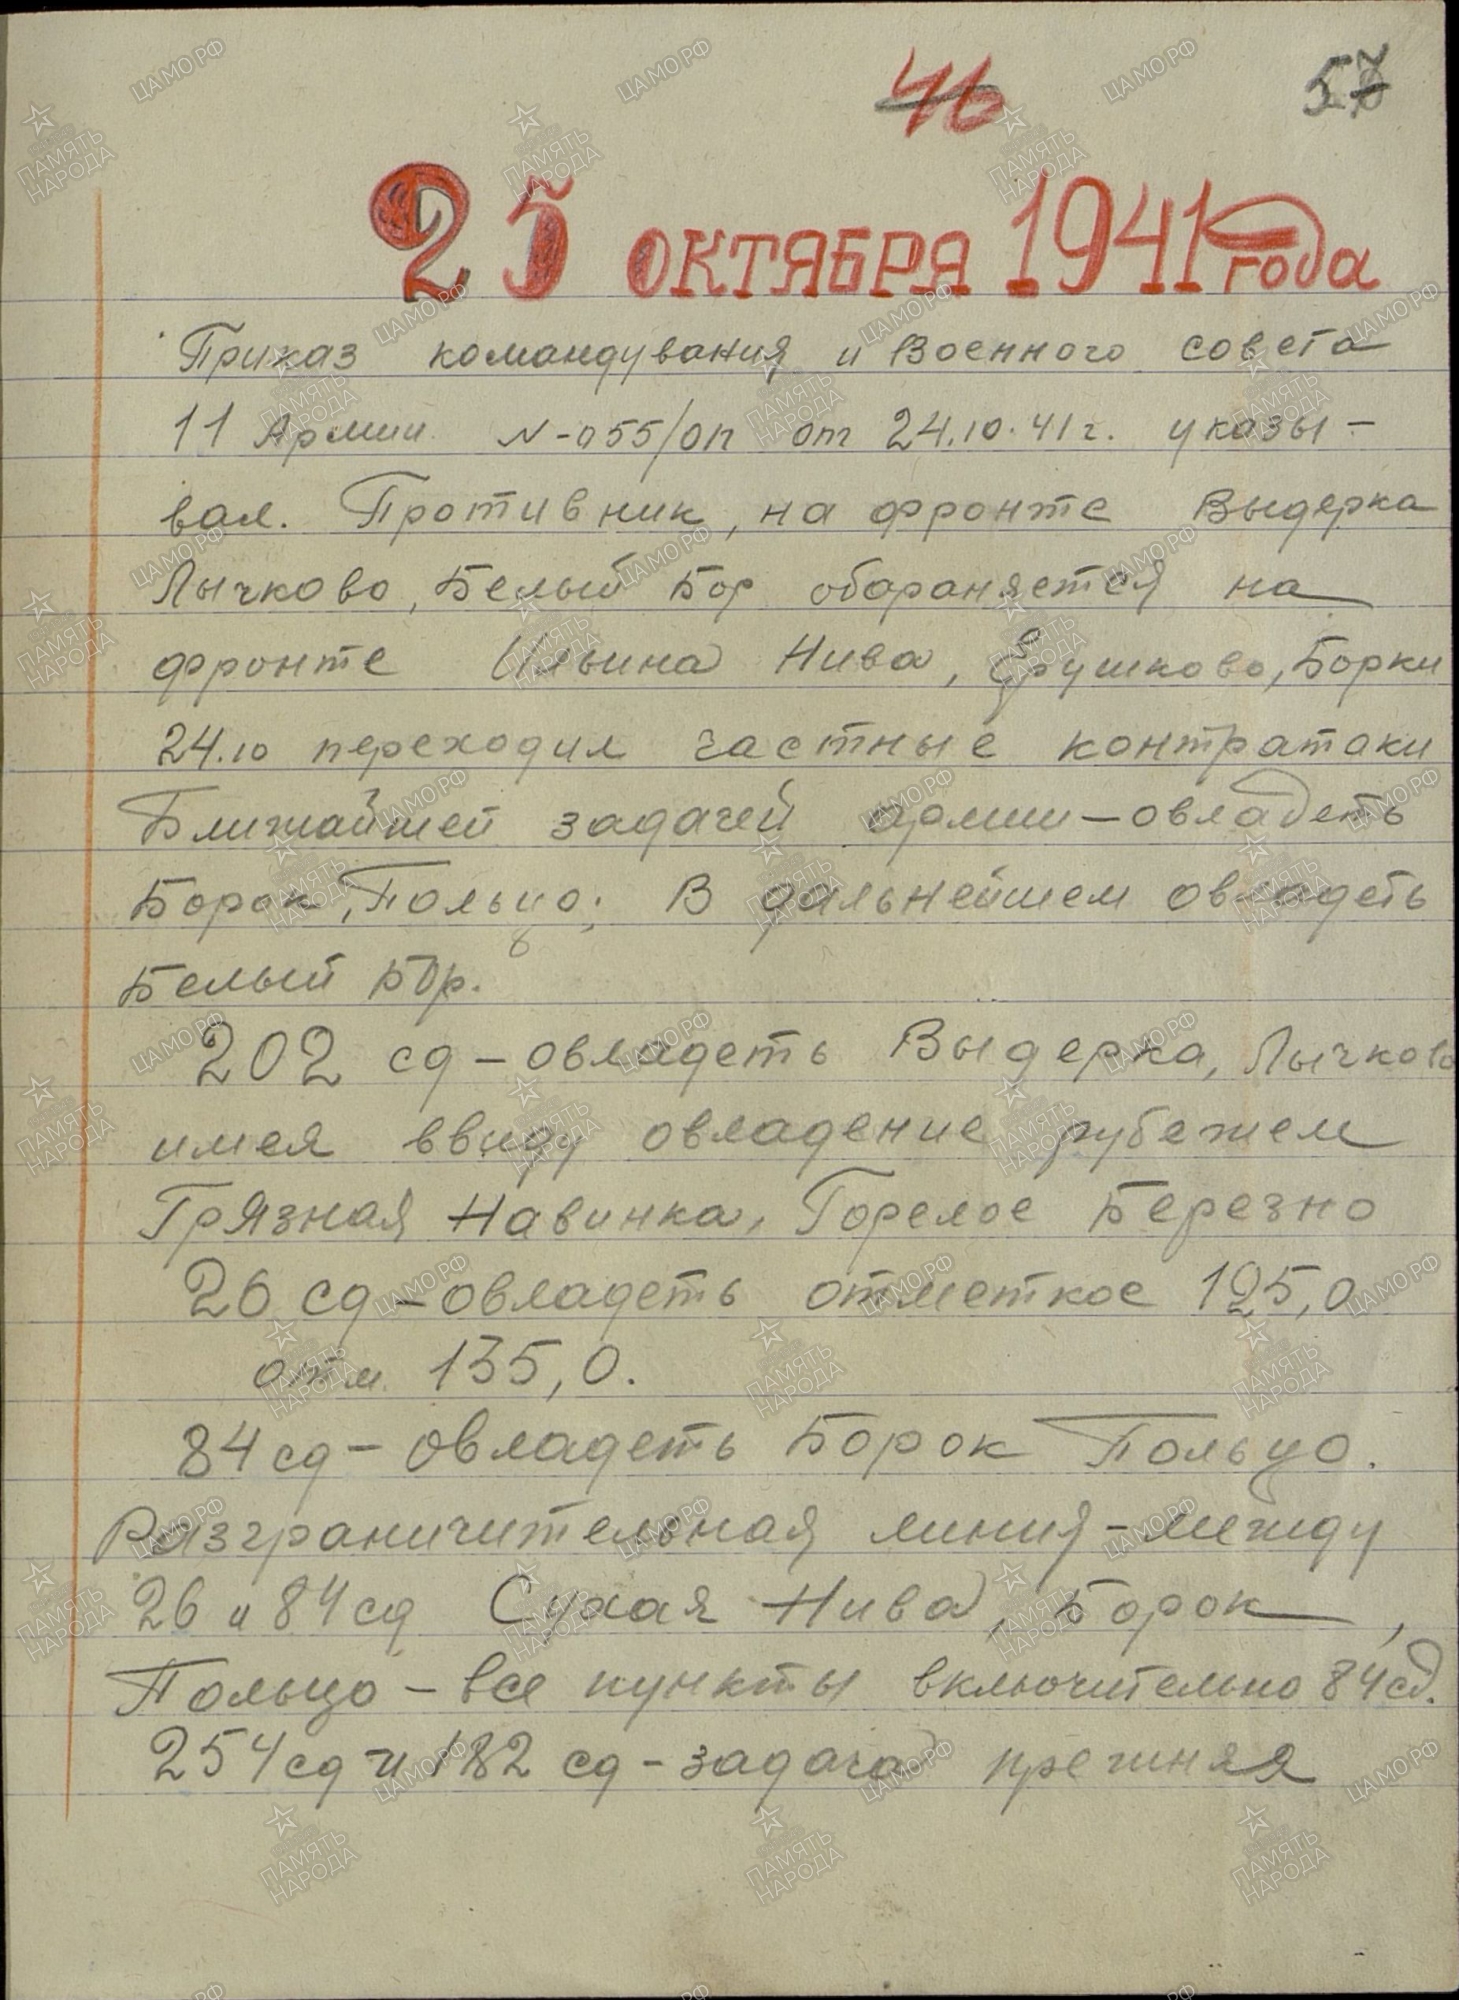 46 57
25 ОКТЯБРЯ 1941 года
Приказ командувания и Военного совета
11 Армии N-055/оп от 24.10.41г. указы-
вал. Противник, на фронте Выдерка
Лычково, Белый Бор обараняется на
фронте Ильина Нива, Ерушково, Борки
24.10 переходил частные контратаки
Ближайшей задачей армии - овладеть
Борок, Польцо; В дальнейшем овладеть
Белый Бор.
202 сд - овладеть Выдерка, Лычково
имея ввиду овладение рубежем
Грязная Навинка, Горелое Березно
26 сд - овладеть отметкое 125,0
отм. 135,0.
84 сд - овладеть Борок Польцо.
Разграничительная линия - между
26 и 84 сд Сухая Нива, Борок,
Польцо - все пункты включительно 84 сд.
254 сд и 182 сд - задача прежняя